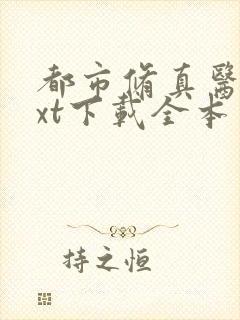 都市脩真醫
xt下載全本
持之恒